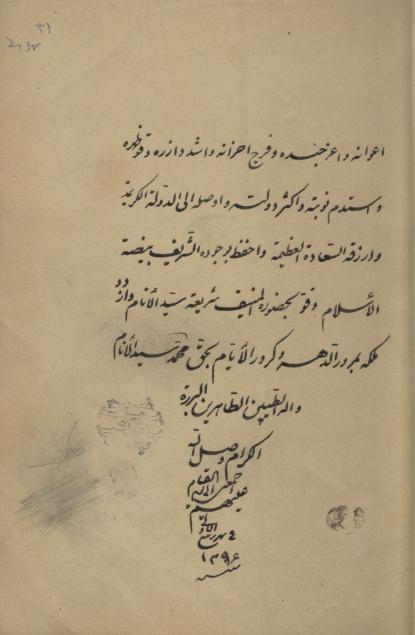 ۳۱
اعوانه و اعز جنده و فرج احزانه و اشدد ازره و قو ظهره
و استدم نوبته و اکثر دولته و اوصله الی الدولة الکریمة
و ارزقه السعادة العظیمة و احفظ بوجوده الشریف بیضة
الأسلام و قو بحضوره المنیف شریعة سیّد الأنام و ازدد
ملکه بمرور الدهر و کرور الأیّام بحق محمّد سید الأنام
و اله الطیبین الطاهرین البررة
الکرام و صل الله
علیهم
۱۲۹۶